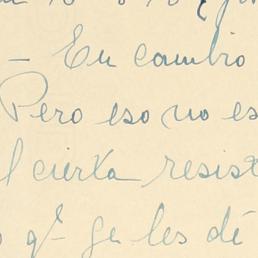 - En cambio
Pero eso no es
l cierta resist
q̶ se les dé